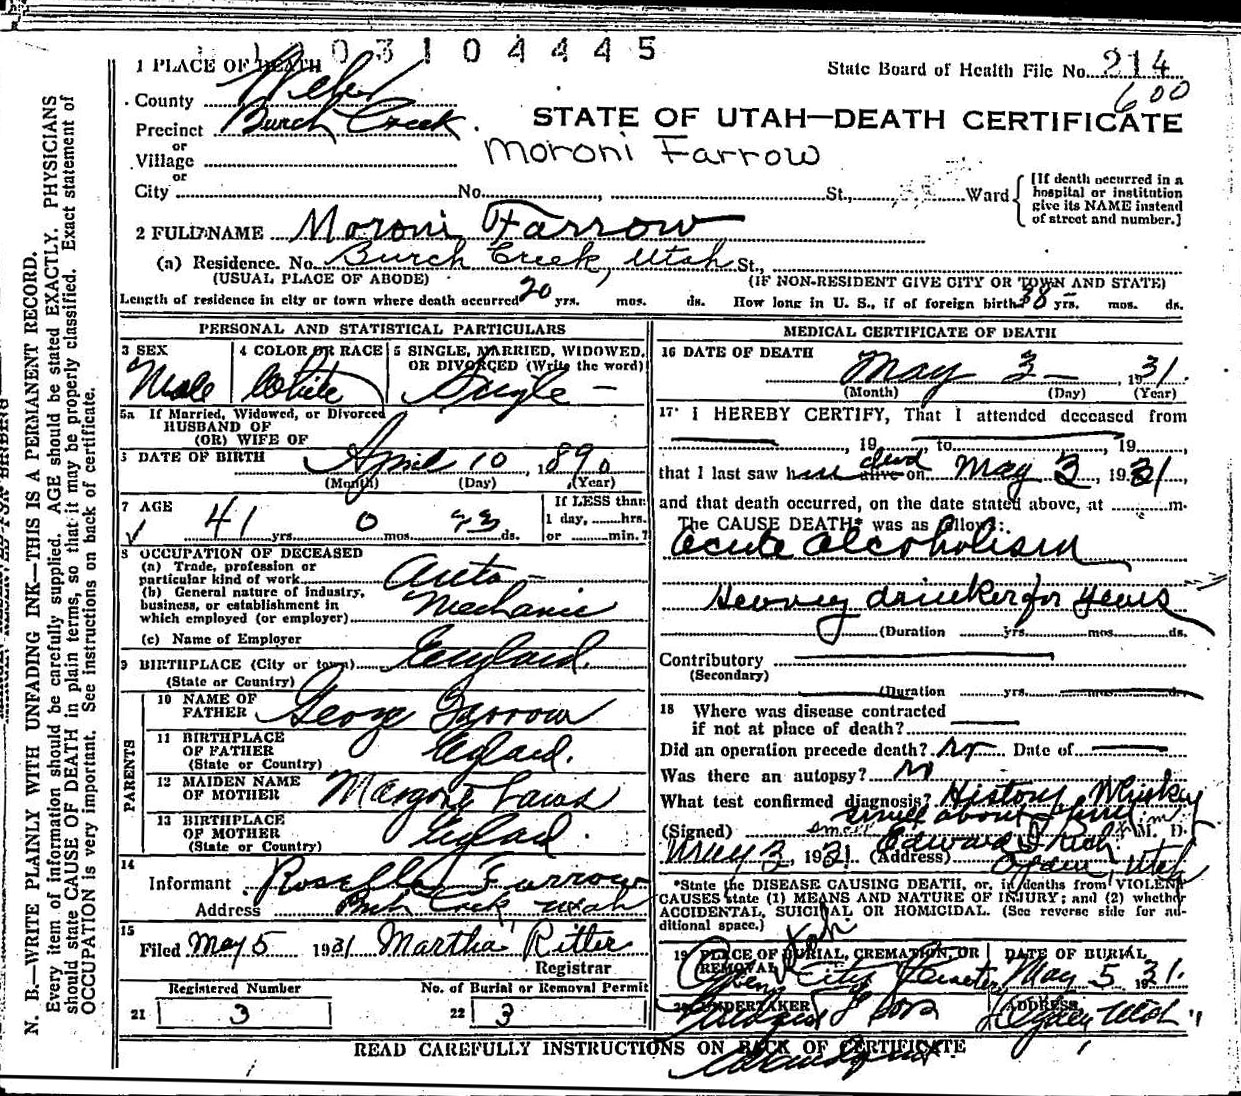 1 0 3 1 0 4 4 4 5
1 PLACE OF DEATH
State Board of Health File No. 214
600
County Weber
Precinct Burch Creek
or
Village
or
City No. St., Ward
[If death occurred in a hospital or institution give its NAME instead of street and number.]
STATE OF UTAH—DEATH CERTIFICATE
Moroni Farrow
2 FULL NAME Moroni Farrow
(a) Residence. No. Burch Creek, Utah St.,
(USUAL PLACE OF ABODE) (IF NON-RESIDENT GIVE CITY OR TOWN AND STATE)
Length of residence in city or town where death occurred 20 yrs. mos. ds. How long in U. S., if of foreign birth 38 yrs. mos. ds.
PERSONAL AND STATISTICAL PARTICULARS
3 SEX
Male
4 COLOR OR RACE
White
5 SINGLE, MARRIED, WIDOWED, OR DIVORCED (Write the word)
Single —
5a If Married, Widowed, or Divorced
HUSBAND OF
(OR) WIFE OF
DATE OF BIRTH
April 10, 1890
(Month) (Day) (Year)
7 AGE
41 yrs. 0 mos. 23 ds.
If LESS than
1 day, hrs.
or min.?
8 OCCUPATION OF DECEASED
(a) Trade, profession or particular kind of work Auto —
(b) General nature of industry, business, or establishment in which employed (or employer) Mechanic
(c) Name of Employer
9 BIRTHPLACE (City or town) England.
(State or Country)
PARENTS
10 NAME OF FATHER George Farrow
11 BIRTHPLACE OF FATHER England.
(State or Country)
12 MAIDEN NAME OF MOTHER
13 BIRTHPLACE OF MOTHER England.
(State or Country)
14
Informant Rosella Farrow
Address Burch Creek Utah
15
Filed May 5 1931 Martha Ritter
Registrar
Registered Number
21 3
No. of Burial or Removal Permit
22 3
MEDICAL CERTIFICATE OF DEATH
16 DATE OF DEATH
May 3 — , 1931.
(Month) (Day) (Year)
17 I HEREBY CERTIFY, That I attended deceased from
, 19 , to , 19 ,
that I last saw h alive dead on May 3, 1931,
and that death occurred, on the date stated above, at m.
The CAUSE DEATH* was as follows:
Acute alcoholism
Heavy drinker for years
(Duration yrs. mos. ds.
Contributory
(Secondary)
(Duration yrs. mos. ds.
18 Where was disease contracted
if not at place of death?
Did an operation precede death? No Date of
Was there an autopsy? No
What test confirmed diagnosis? History, Whiskey
smell about
(Signed) Edward I Rich M. D.
May 3, 1931 (Address) Ogden, Utah
*State the DISEASE CAUSING DEATH, or, in deaths from VIOLENT
CAUSES state (1) MEANS AND NATURE OF INJURY; and (2) whether
ACCIDENTAL, SUICIDAL OR HOMICIDAL. (See reverse side for additional space.)
19 PLACE OF BURIAL, CREMATION, OR REMOVAL
Ogden City Cemetery Utah
DATE OF BURIAL
May 5 1931.
20 UNDERTAKER
& Sons
ADDRESS
Ogden, Utah
READ CAREFULLY INSTRUCTIONS ON BACK OF CERTIFICATE
N. B.—WRITE PLAINLY WITH UNFADING INK—THIS IS A PERMANENT RECORD.
Every item of information should be carefully supplied. AGE should be stated EXACTLY. PHYSICIANS
should state CAUSE OF DEATH in plain terms, so that it may be properly classified. Exact statement of
OCCUPATION is very important. See instructions on back of certificate.